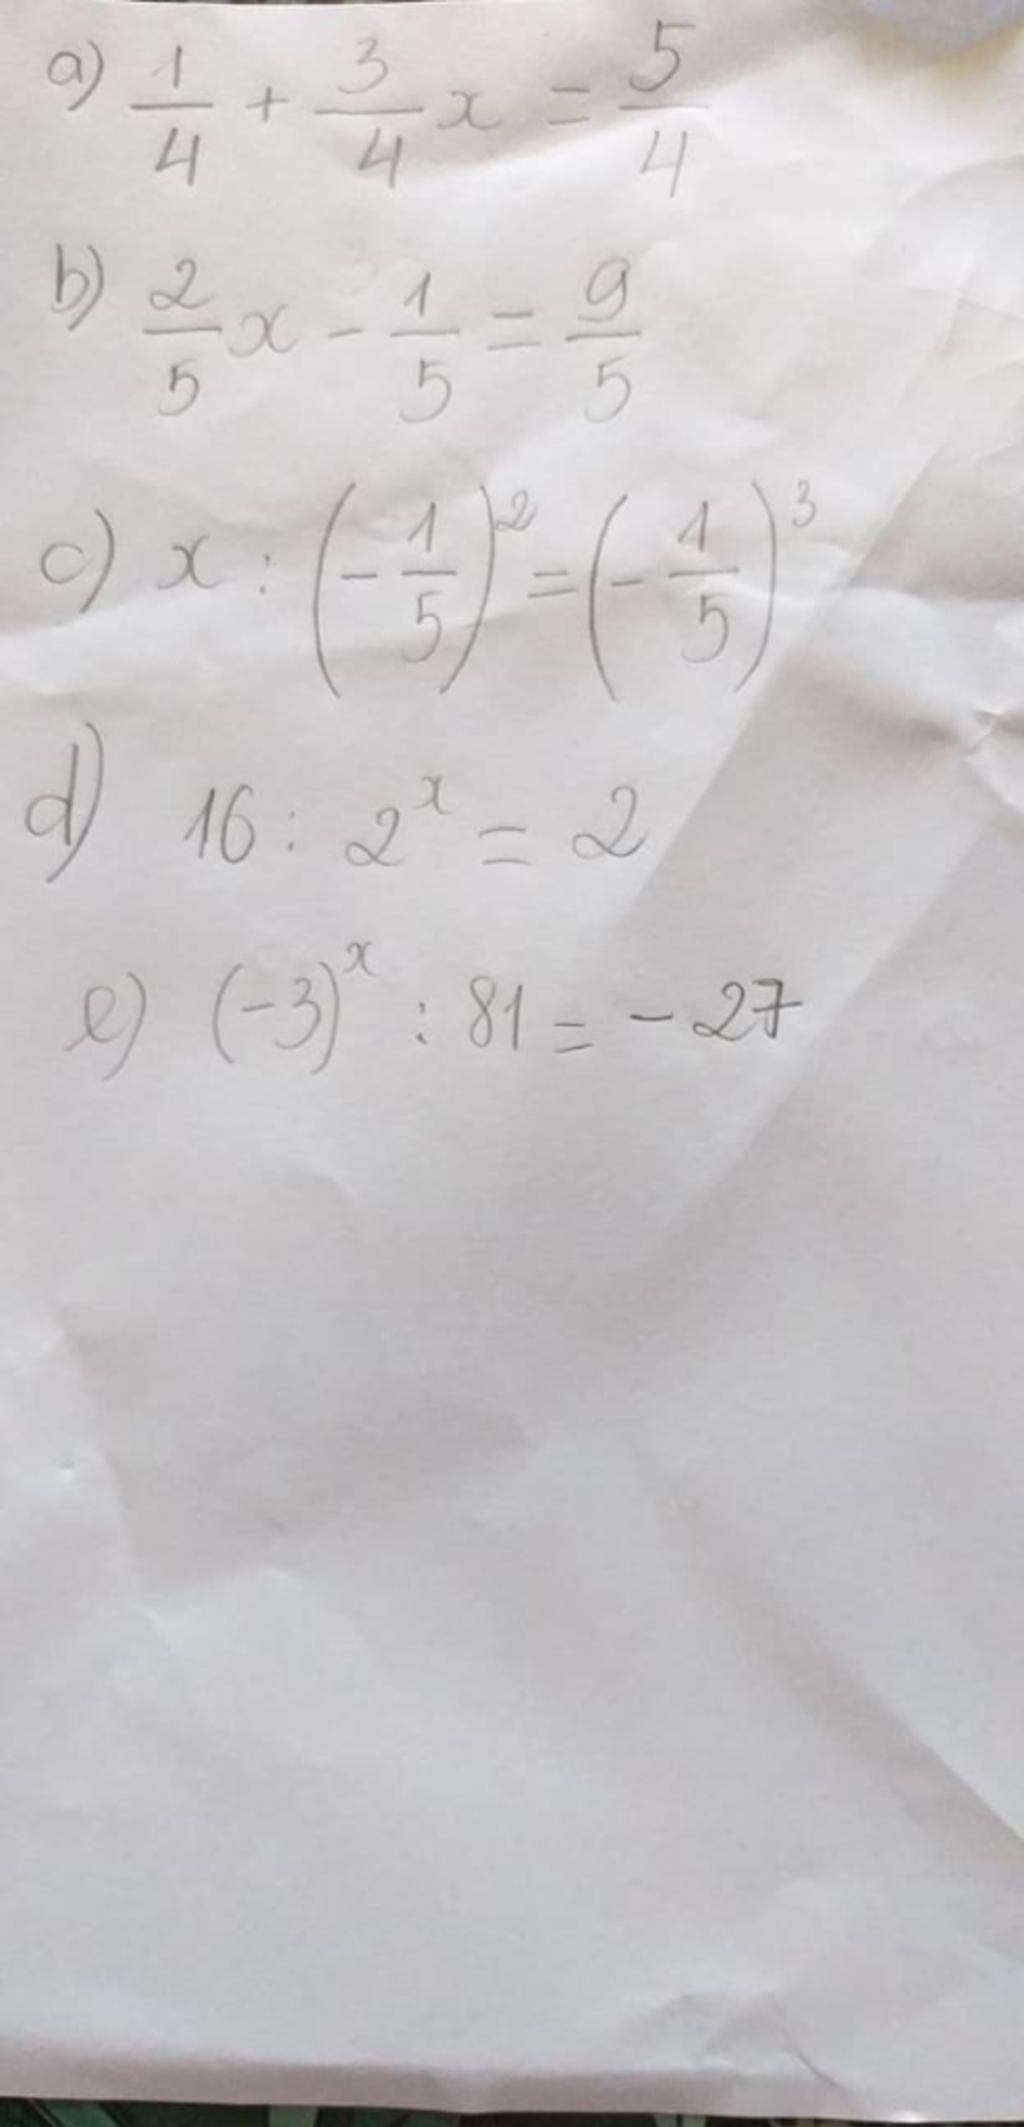 a) 1/4 + 3/4 x = 5/4
b) 2/5 x - 1/5 = 9/5
c) x : (-1/5)² = (-1/5)³
d) 16 : 2ˣ = 2
e) (-3)ˣ : 81 = -27